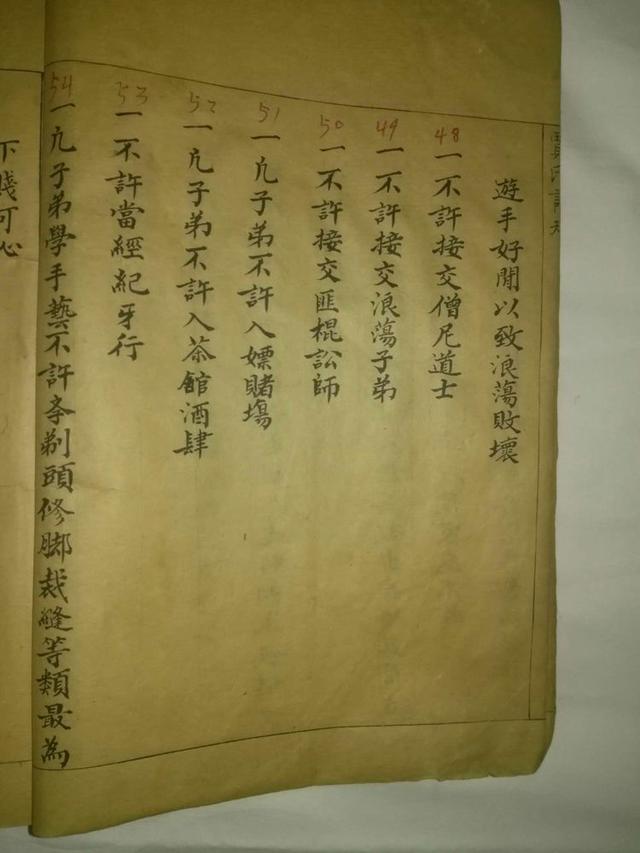 遊手好閒以致浪蕩敗壞
48
一不許接交僧尼道士
49
一不許接交浪蕩子弟
50
一不許接交匪棍訟師
51
一凢子弟不許入嫖賭場
52
一凢子弟不許入茶館酒肆
53
一不許當經紀牙行
54
一凢子弟學手藝不許斈剃頭修脚裁縫等類最為
下賤可